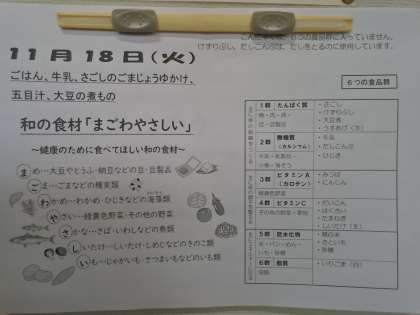 こんにゃくは、6つの食品群に入っていません。
けずりぶし、だしこんぶは、だしをとるのに使用しています。
11月18日(火)
ごはん、牛乳、さごしのごまじょうゆかけ、
五目汁、大豆の煮もの
和の食材「まごわやさしい」
～健康のために食べてほしい和の食材～
まめ…大豆やとうふ・納豆などの豆・豆製品
ごま…ごまなどの種実類
わかめ…わかめ・ひじきなどの海藻類
やさい…緑黄色野菜・その他の野菜
さかな…さば・いわしなどの魚
しいたけ…しいたけ・しめじなどのきのこ類
いも…じゃがいも・さつまいもなどのいも類
6つの食品群
1群 たんぱく質
・さごし
・けずりぶし
・大豆
・うすあげ
2群 無機質
(カルシウム)
・牛乳
・だしこんぶ
・ひじき
3群 ビタミンA
(カロテン)
緑黄色野菜
・みつば
・にんじん
4群 ビタミンC
その他の野菜・果物
・だいこん
・はくさい
・たまねぎ
・しいたけ
5群 炭水化物
・精白米
・さといも
・砂糖
6群 脂質
油脂
・いりごま